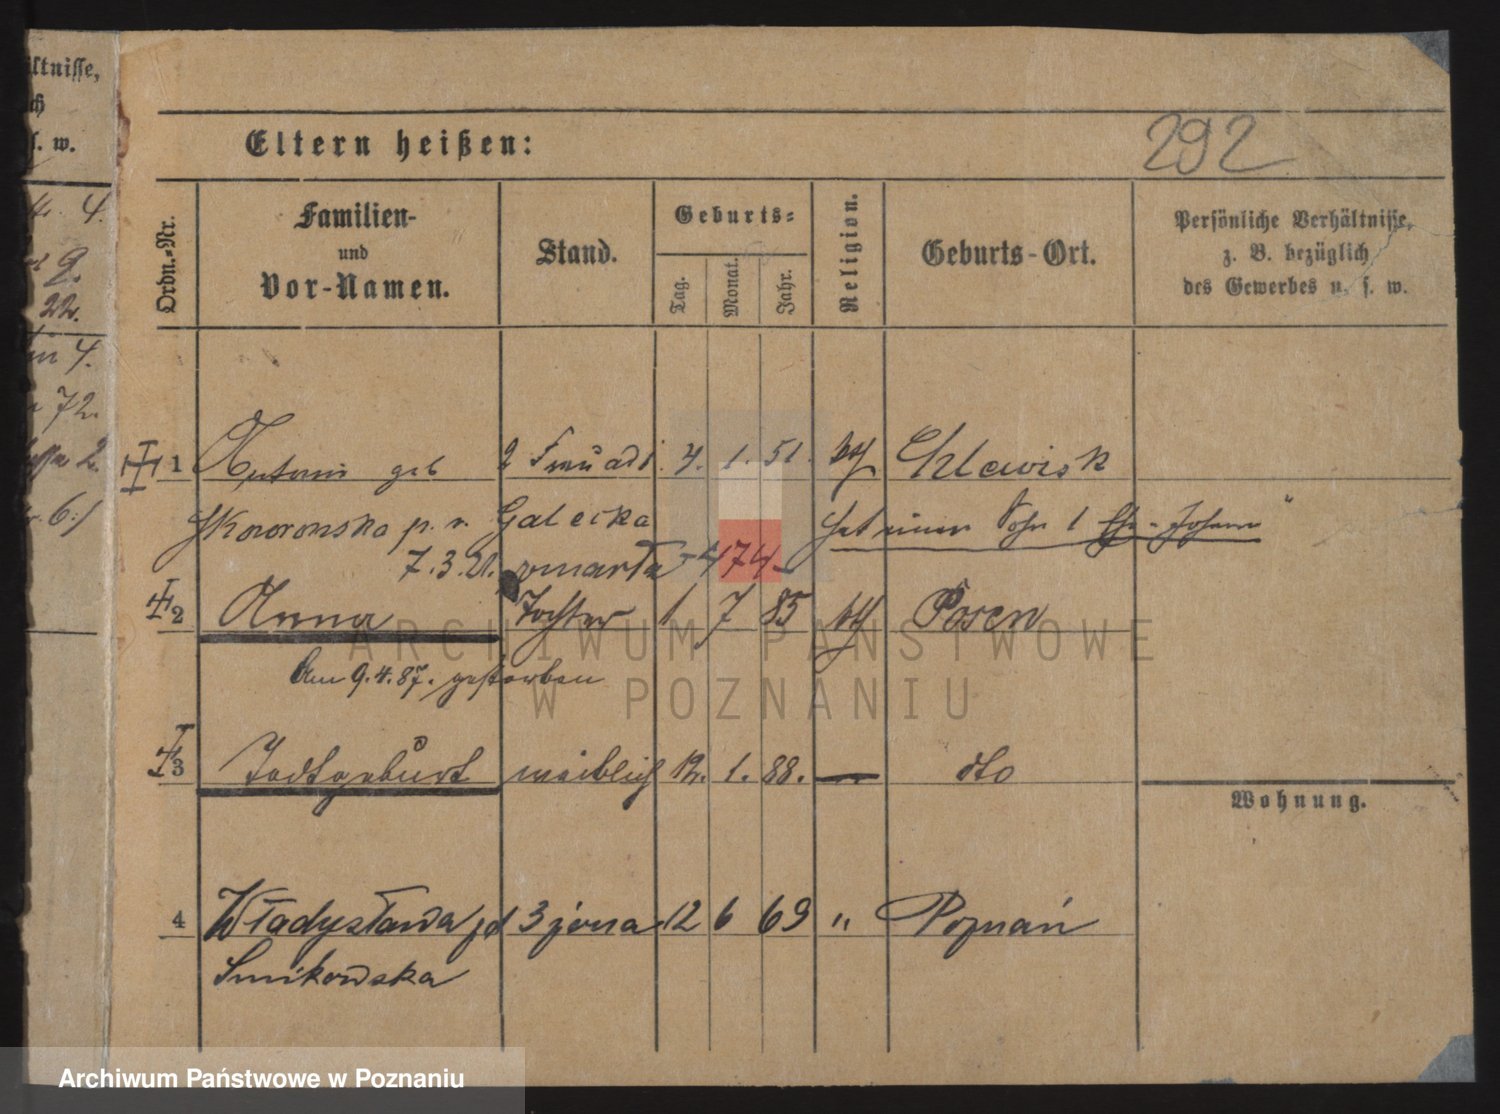 ltnisse,
ch
s. w.
4.
9.
22.
4.
72.
2.
6./
Eltern heißen:
292
Ordn.-Nr.
Familien-
und
Vor-Namen.
Stand.
Geburts-
Tag.
Monat.
Jahr.
Religion.
Geburts-Ort.
Persönliche Verhältnisse,
z. B. bezüglich
des Gewerbes u. s. w.
1 geb 2 Frau 1. 51. Chlewisk
Skoronska p. v. Galecka hat einen Sohn 1 Johann
7.3.21. zmarła 474
2 Anna Tochter 1 7 85 Posen
Am 9.4.87. gestorben
3 Todtgeburt weiblich 12. 1. 88. — dto
Wohnung.
4 Władysława 3 żona 12 6 69 " Poznań
Smikowska
ARCHIWUM PAŃSTWOWE
W POZNANIU
Archiwum Państwowe w Poznaniu